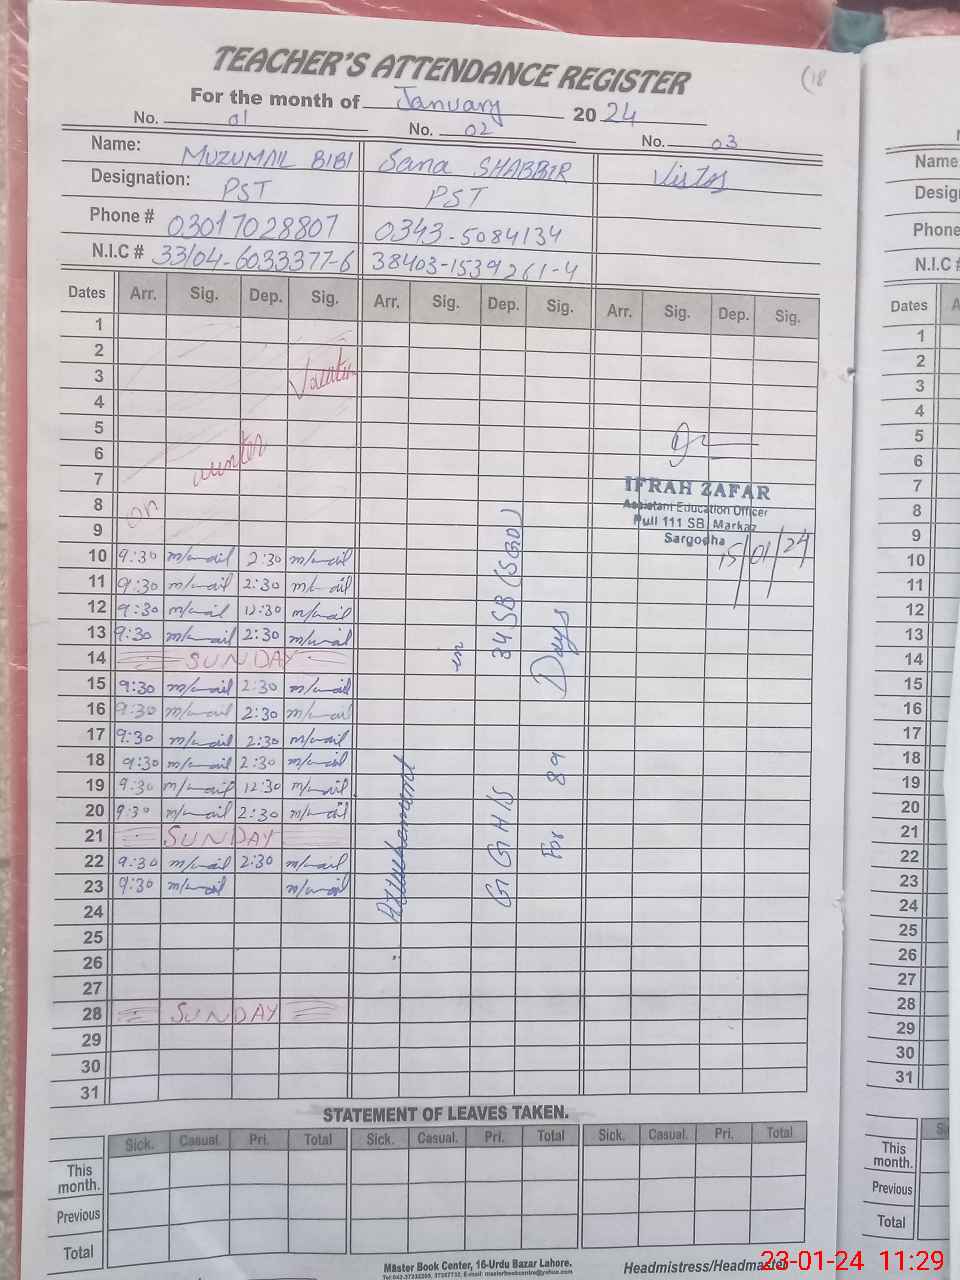 TEACHER'S ATTENDANCE REGISTER
(18
For the month of January 20 24
No. 01 No. 02 No. 03
Name: MUZUMAIL BIBI Sana SHABBIR
Designation: PST PST
Phone # 03017028807 0343-5084134
N.I.C # 33104-6033377-6 38403-1539261-4
Dates Arr. Sig. Dep. Sig. Arr. Sig. Dep. Sig. Arr. Sig. Dep. Sig.
1
2
3
4
5
6 winter
7
8
9
10 9:30 2:30
11 9:30 2:30
12 9:30 12:30
13 9:30 2:30
14 SUNDAY
15 9:30 2:30
16 9:30 2:30
17 9:30 2:30
18 9:30 2:30
19 9:30 12:30
20 9:30 2:30
21 SUNDAY
22 9:30 2:30
23 9:30
24
25
26
27
28 SUNDAY
29
30
31
in
GGHS 34 SB (SGD)
For 89 Days
IFRAH ZAFAR
Assistant Education Officer
Pull 111 SB, Markaz
Sargodha
15/01/24
STATEMENT OF LEAVES TAKEN.
Sick. Casual. Pri. Total Sick. Casual. Pri. Total Sick. Casual. Pri. Total
This month.
Previous
Total
Master Book Center, 16-Urdu Bazar Lahore.
Headmistress/Headmaster
Name
Desig
Phone
N.I.C #
Dates A
1
2
3
4
5
6
7
8
9
10
11
12
13
14
15
16
17
18
19
20
21
22
23
24
25
26
27
28
29
30
31
This month.
Previous
Total
23-01-24 11:29